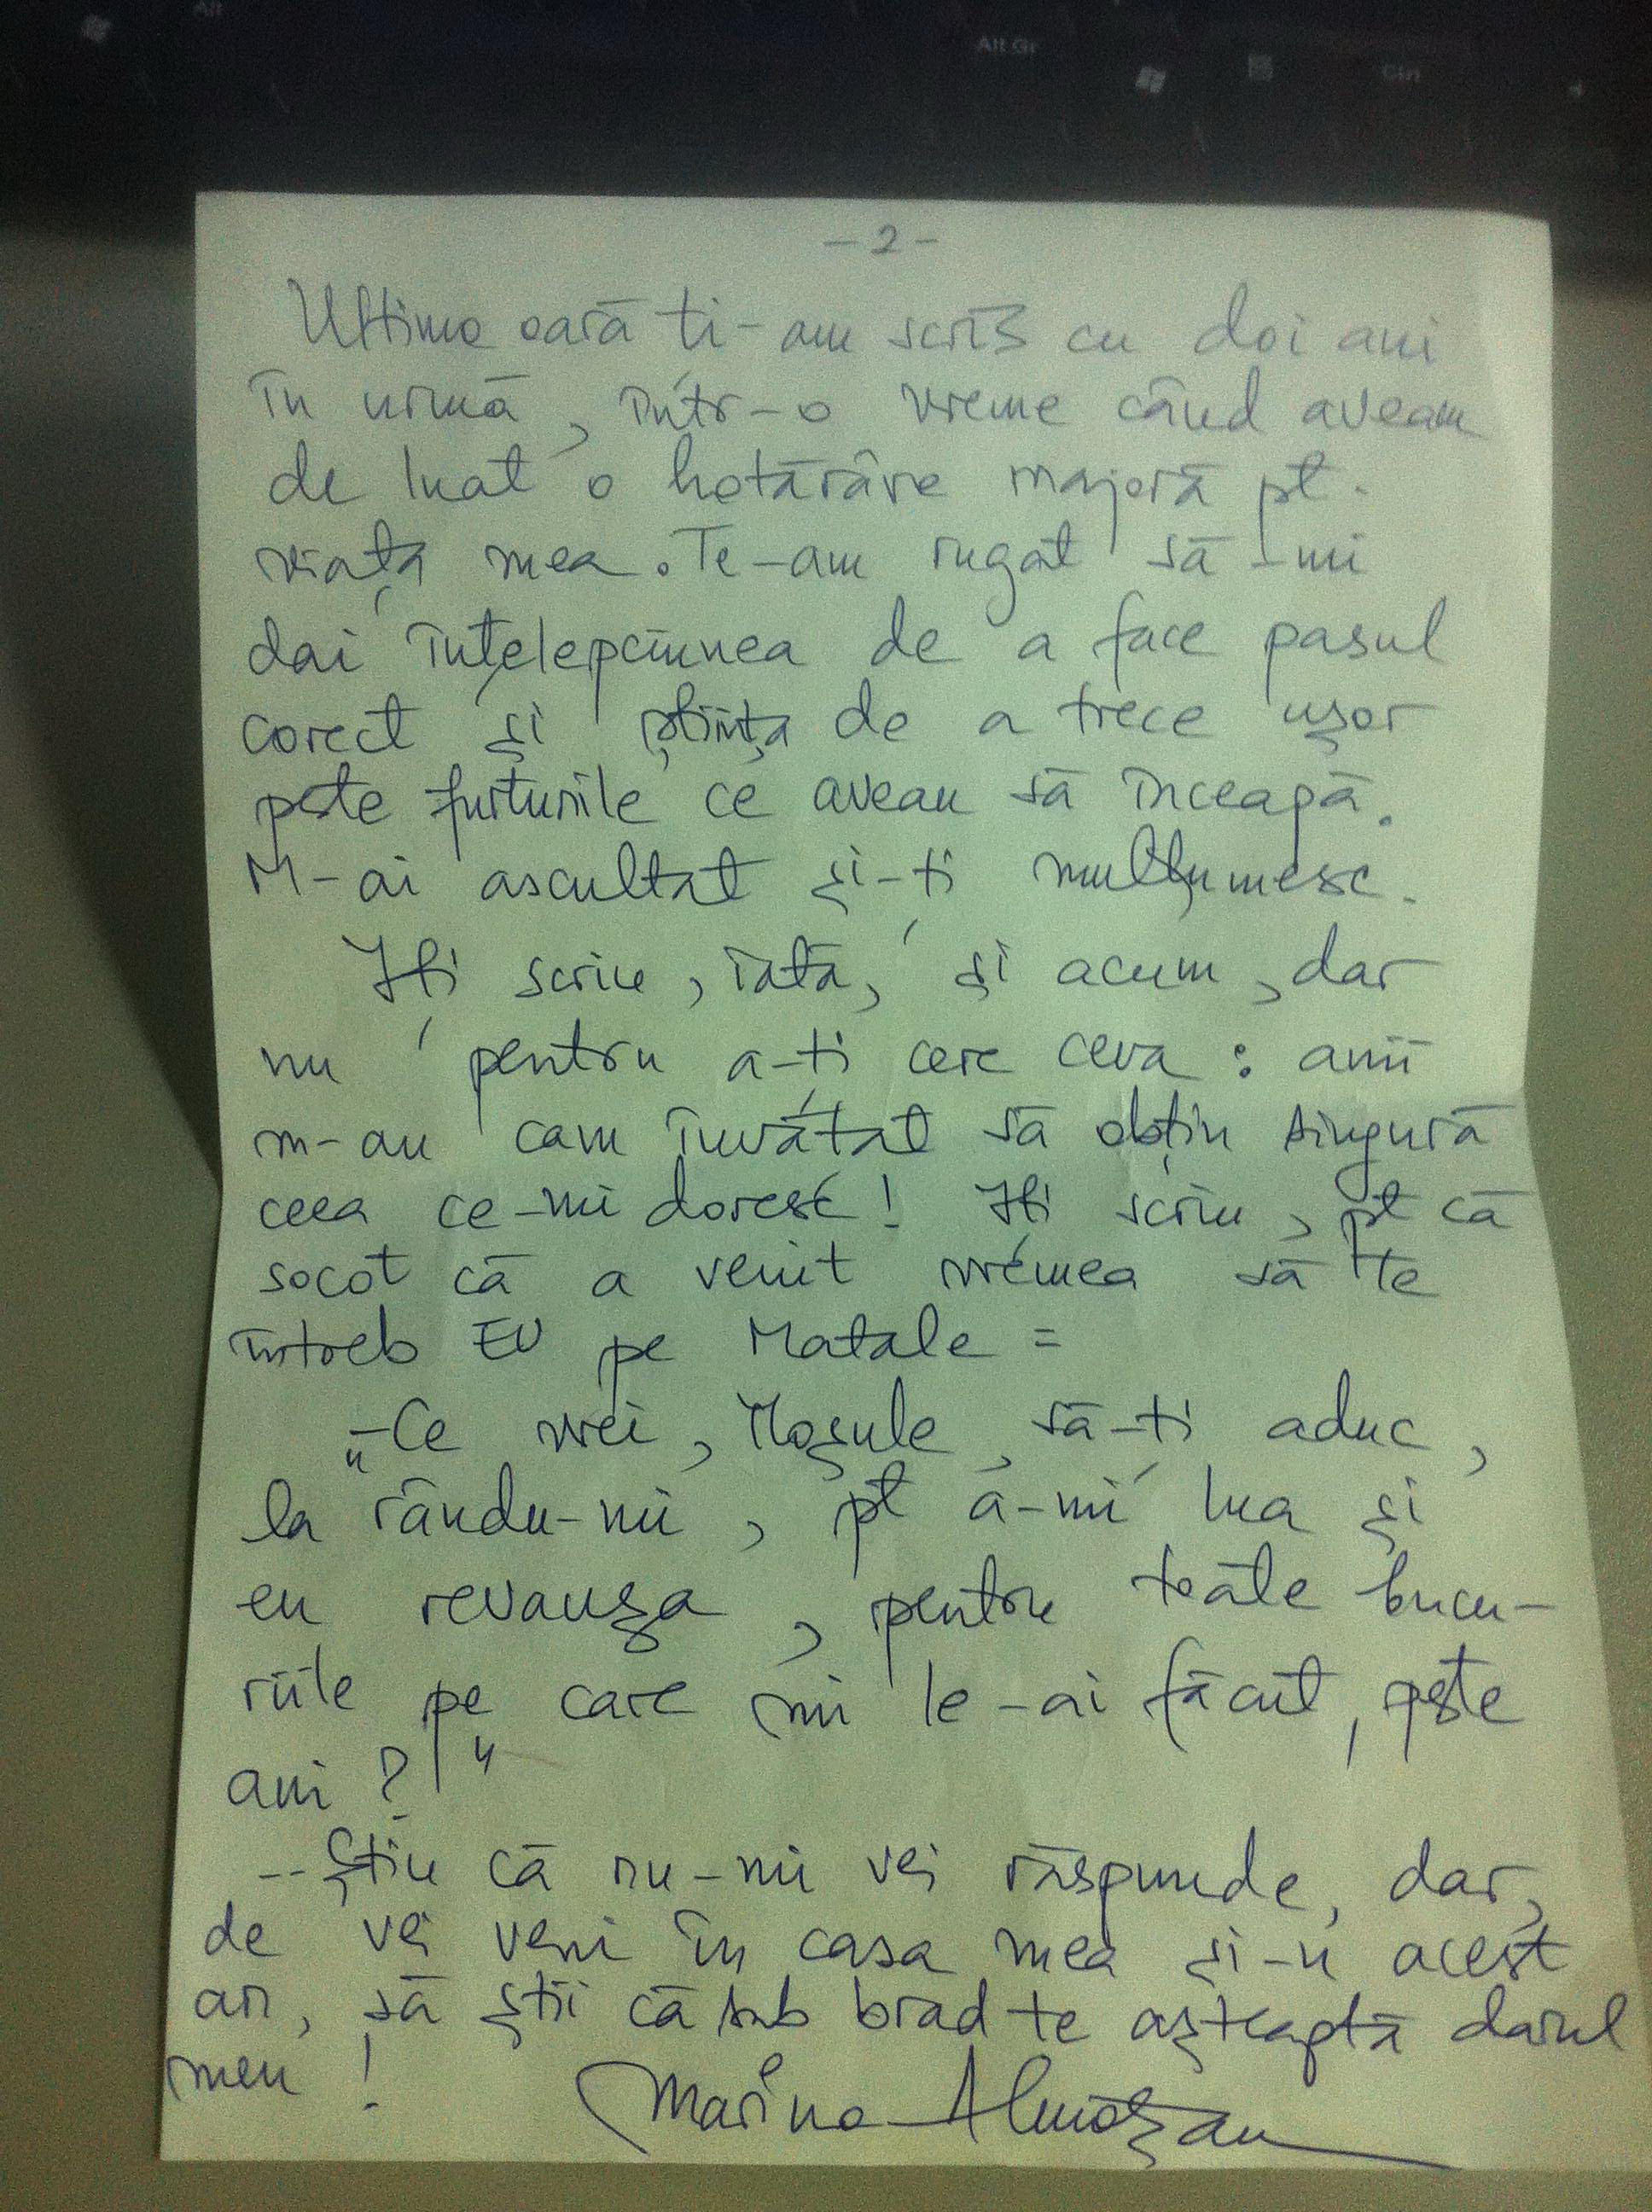 Alt
Alt Gr
- 2 -
Ultima oară ți-am scris cu doi ani
în urmă, într-o vreme când aveam
de luat o hotărâre majoră pt.
viața mea. Te-am rugat să-mi
dai înțelepciunea de a face pasul
corect și știința de a trece ușor
peste furtunile ce aveau să înceapă.
M-ai ascultat și-ți mulțumesc.
Iți scriu, iată, și acum, dar
nu pentru a-ți cere ceva: anii
m-au cam învățat să obțin singură
ceea ce-mi doresc! Iți scriu, pt că
socot că a venit vremea să te
întreb EU pe Matale =
„-Ce vrei, Moșule, să-ți aduc,
la rându-mi, pt a-mi lua și
eu revanșa, pentru toate bucu-
riile pe care mi le-ai făcut, peste
ani?"
-- Știu că nu-mi vei răspunde, dar,
de vei veni în casa mea și-n acest
an, să știi că sub brad te așteaptă darul
meu!
Marina Almășan